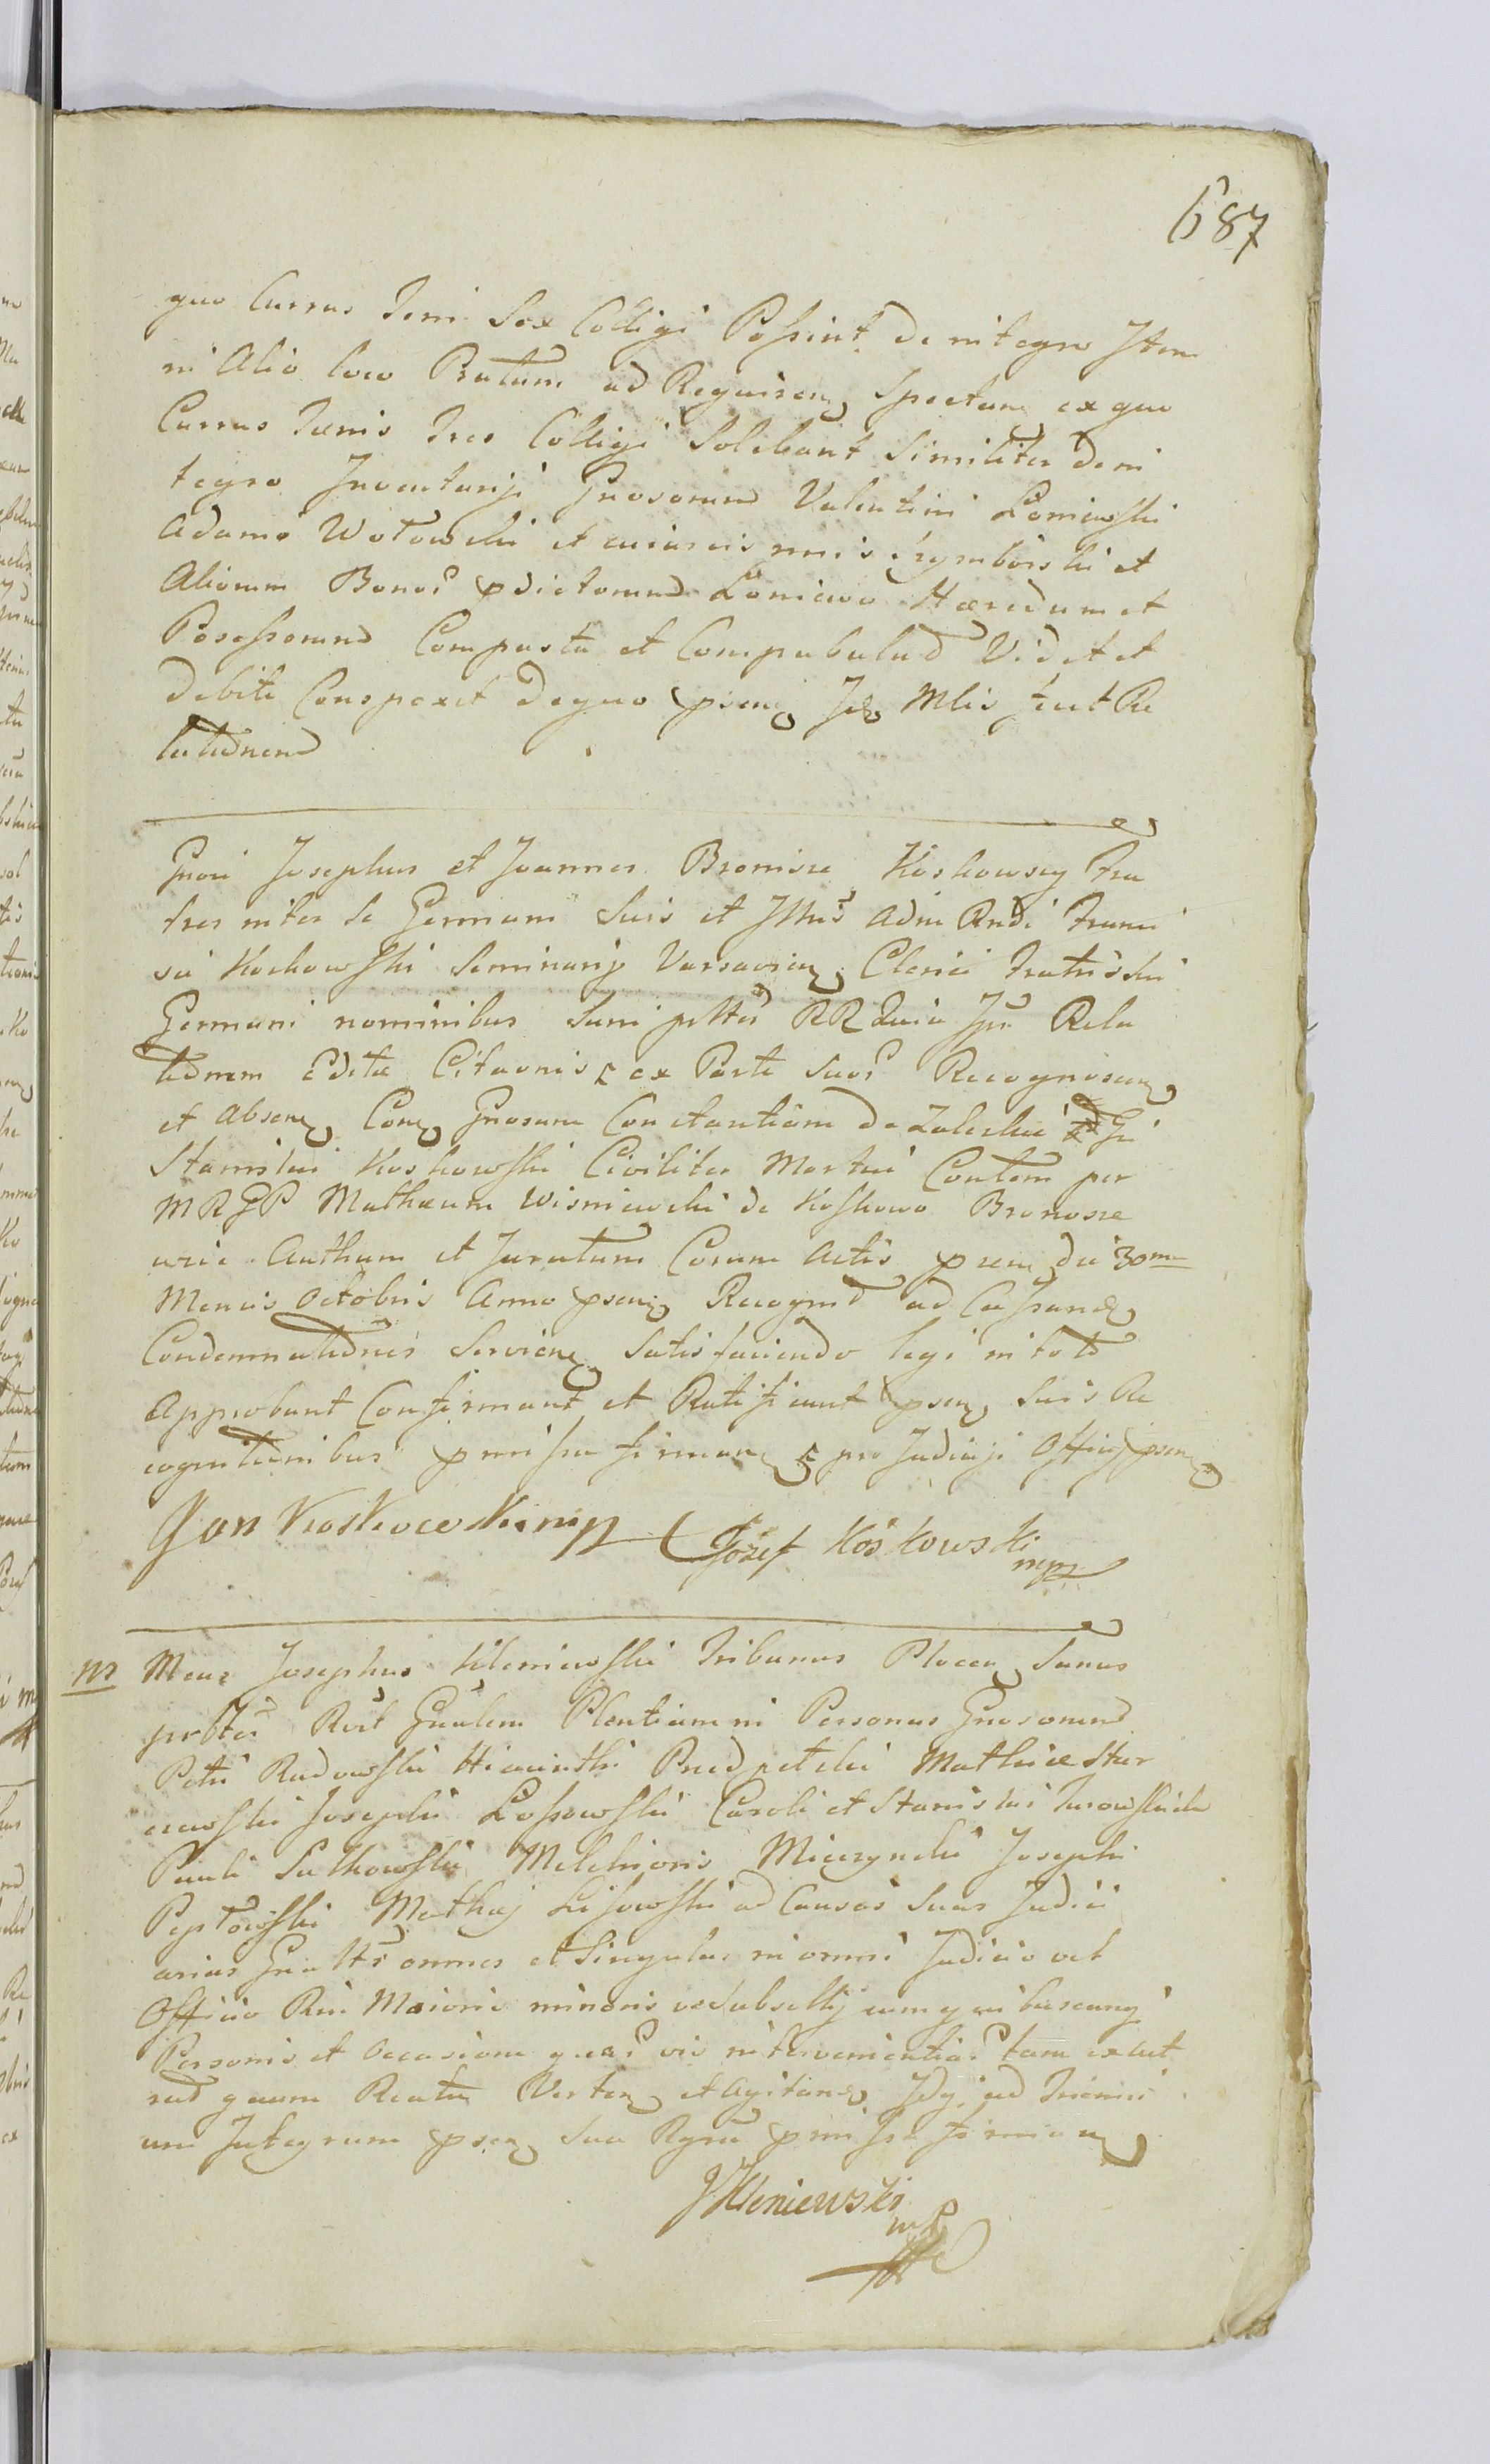 687
quo Currus Feni Sex Colligi Possint de integro Item
in Alio loco Pratum ad Requiren Spectans ex quo
Currus Faenis Tres Colligi Solebant Similiter de in
tegro Inventarij Gnosorum Valentini Łoniewski
Adami Wotowski et cuiusvis nnis Szymborski et
Aliorum Bonor pdictorum Łoniewo Haeredum et
Possessorum Compasta et Compabulad Vidit et
debite Conspexit de quo psen Jdq Mlis fecit Re
latiōnem
Gnosi Josephus et Joannes Bronisze Koskowscy Fra
tres inter se Germani Suis et Illius Adm Rndi Franci
sci Koskowski Seminarij Varsavien Clerici Fratris sui
Germani nominibus Sani pttēr RR Quia Ipsi Rela
tionem Editae Citaonis ex Parte Suor Recognoscen
et Absen Con Gnosam Constantiam de Zaleskie Gsi
Stanislai Koskowski Civiliter Mortui Contem per
MRGP Mathaeum Wisniewski de Koskowo Bronosze
wie Authum et Juratum Coram Actis psen die 30ma
Mensis Octobris Anno psen Recognid ad Cassand
Condemnationes Servien Satisfaciendo legi in toto
Approbant Confirmant et Ratificant psen Suis Re
cognitionibus pmissa firman pro Judicij Offici psen
Jan Koskowski mp Józef Koskowski
mpp
M Mcus Josephus Kleniewski Tribunus Plocen Sanus
pttēr Rcit Gnalem Plentiam in Personas Gnosorum
Petri Radowski Hiacinthi Przedpełski Mathiae Stur
Josephi Łossowski Caroli et Stanislai Turowskich
Pauli Sutkowski Melchioris Mieczynski Josephi
Pepłowski Mathaej Lisowski ad Causas Suas Judici
arias Gnaltr omnes et Singulas in omni Judicio vel
Officio Rni Maioris minoris ve Subsellij cum quibuscunq
Personis et occasione quar vis intervenientiar tam ex Act
rad quam Reatu Verten et Agitand Idq ad Trienni
um Integrum psen Sua Rgne pmissa firman
JKleniewski
mp